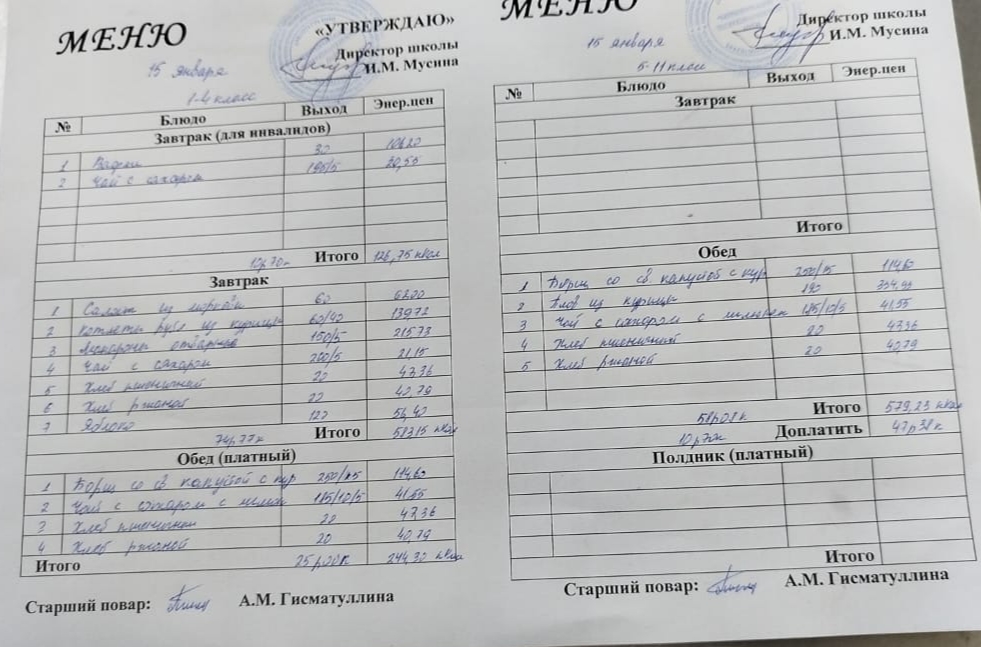 МЕНЮ
«УТВЕРЖДАЮ»
Директор школы
И.М. Мусина
15 января
1-4 класс
№ Блюдо Выход Энер.цен
Завтрак (для инвалидов)
1 Вафли 30 106,20
2 Чай с сахаром 195/5 20,55
10р70к Итого 126,75 ккал
Завтрак
1 Салат из моркови 60
2 Котлеты руб из курицы 60/40 139,72
3 Макароны отварные 150/5 215,73
4 Чай с сахаром 200/5 21,15
5 Хлеб пшеничный 20 47,36
6 Хлеб ржаной 20 40,79
7 Яблоко 120 56,40
74р77к Итого 583,15 ккал
Обед (платный)
1 Борщ со св капустой с кур 250/15 114,60
2 Чай с сахаром с 185/10/5 41,55
3 Хлеб пшеничный 20 47,36
4 Хлеб ржаной 20 40,79
Итого 25р00к 244,30 ккал
Старший повар: А.М. Гисматуллина
МЕНЮ
Директор школы
И.М. Мусина
15 января
5-11 класс
№ Блюдо Выход Энер.цен
Завтрак
Итого
Обед
1 Борщ со св. капустой с кур 250/15 114,60
2 Плов из курицы 190 334,93
3 Чай с сахаром с 185/10/5 41,55
4 Хлеб пшеничный 20 47,36
5 Хлеб ржаной 20 40,79
58р08к Итого 579,23 ккал
10р70к Доплатить 47р38к
Полдник (платный)
Итого
Старший повар: А.М. Гисматуллина